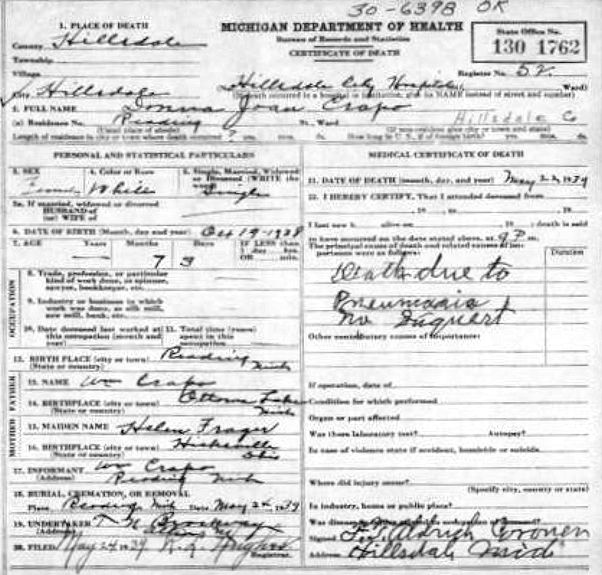 30-6398 OK
1. PLACE OF DEATH
MICHIGAN DEPARTMENT OF HEALTH
Bureau of Records and Statistics
CERTIFICATE OF DEATH
State Office No.
130 1762
County Hillsdale
Township
Village
Register No. 52
City Hillsdale Hillsdale City Hospital Ward)
(If death occurred in a hospital or institution, give its NAME instead of street and number)
2. FULL NAME Donna Joan Crapo
(a) Residence No. Reading St., Ward Hillsdale Co
(Usual place of abode) (If non-resident give city or town and state)
Length of residence in city or town where death occurred ? yrs. mos. ds. How long in U. S., if of foreign birth? yrs. mos. ds.
PERSONAL AND STATISTICAL PARTICULARS
3. SEX
4. Color or Race White
5. Single, Married, Widowed or Divorced (WRITE the word) Single
5a. If married, widowed or divorced
HUSBAND of
(or) WIFE of
6. DATE OF BIRTH (Month, day and year) Oct 19-1938
7. AGE — Months 7 Days 3 IF LESS than
1 day hrs.
OR min.
OCCUPATION
8. Trade, profession, or particular
kind of work done, as spinner,
sawyer, bookkeeper, etc.
9. Industry or business in which
work was done, as silk mill,
saw mill, bank, etc.
10. Date deceased last worked at
this occupation (month and
year)
11. Total time (years)
spent in this
occupation
12. BIRTH PLACE (city or town) Reading
(State or country) Mich
FATHER
13. NAME Wm Crapo
14. BIRTHPLACE (city or town) Ottawa Lake
(State or country) Mich
MOTHER
15. MAIDEN NAME Helen Frager
16. BIRTHPLACE (city or town) Hicksville
(State or country) Ohio
17. INFORMANT Wm Crapo
(Address) Reading Mich
18. BURIAL, CREMATION, OR REMOVAL
Place Reading Mich Date May 24 1939
19. UNDERTAKER
(Address)
20. FILED May 24 1939 Registrar.
MEDICAL CERTIFICATE OF DEATH
21. DATE OF DEATH (month, day, and year) May 22, 1939
22. I HEREBY CERTIFY, That I attended deceased from
, 19 , to , 19
I last saw h alive on , 19 , death is said
to have occurred on the date stated above, at 9 P m.
The principal cause of death and related causes of importance were as follows:
Duration
Death due to
Pneumonia
No Inquest
Other contributory causes of importance:
If operation, date of
Condition for which performed
Organ or part affected
Was there laboratory test? Autopsy?
In case of violence state if accident, homicide or suicide.
Where did injury occur?
(Specify city, county or state)
In industry, home or public place?
Signed Aldrich Coroner
Address Hillsdale Mich